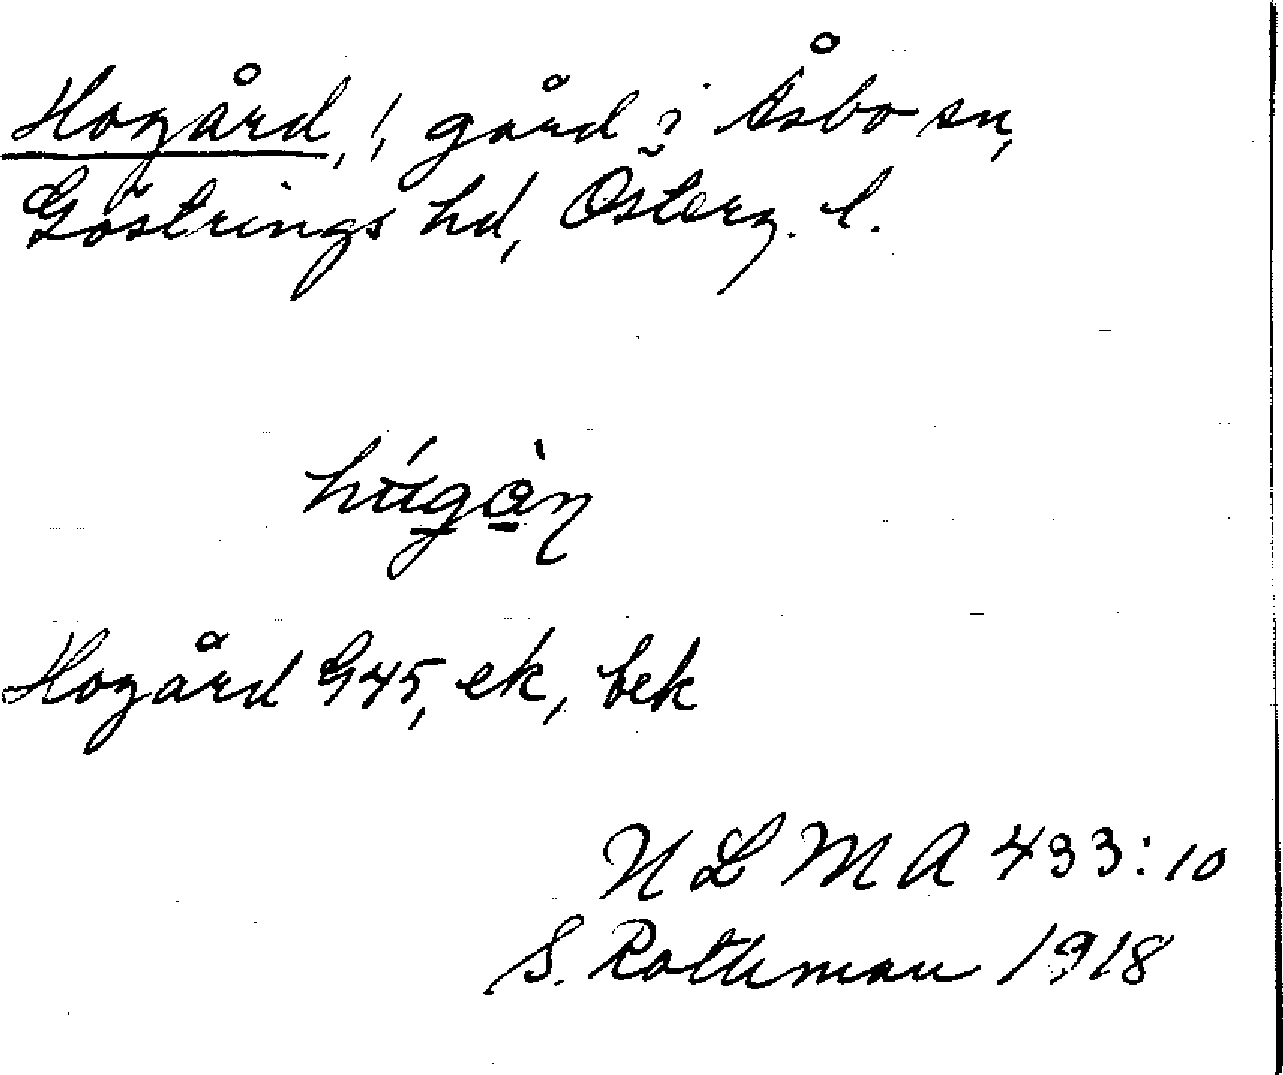 Hogård, !, gård i Åsbo sn,
Göstrings hd, Österg. l.
Hogård G45, ek, bek
ULMA 433:10
S. Rothman 1918